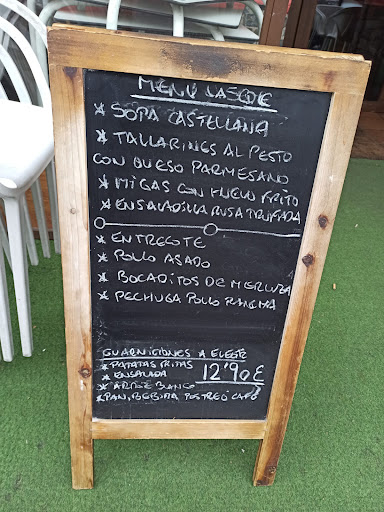 MENÚ LASQUE
* SOPA CASTELLANA
* TALLARINES AL PESTO
CON QUESO PARMESANO
* MIGAS CON HUEVO FRITO
* ENSALADILLA RUSA TRUFADA
* ENTRECOTE
* POLLO ASADO
* BOCADITOS DE MERLUZA
* PECHUGA POLLO RANCHERA
GUARNICIONES A ELEGIR
* PATATAS FRITAS
* ENSALADA 12'90€
* ARROZ BLANCO
* PAN, BEBIDA POSTRE O CAFÉ